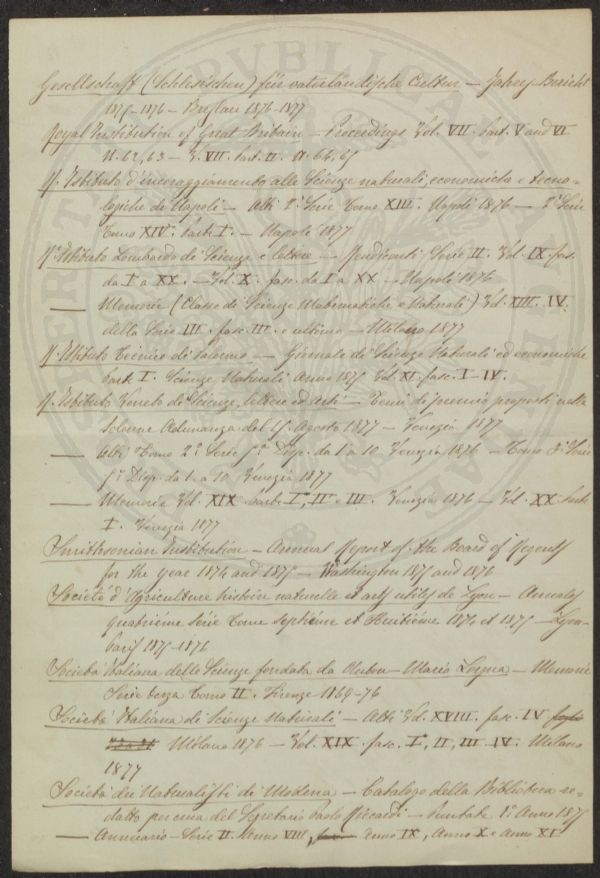 Gesellschaft (Schlesischen) für vaterländische Cultur – Jahres-Bericht
1875-1876 – Breslau 1876-1877
Royal Institution of Great Britain – Proceedings Vol. VII. part. V and VI
N. 62, 63 – V. VII. part. II. N. 64, 65
R. Istituto d'incoraggiamento alle Scienze naturali, economiche e tecno-
logiche di Napoli – Atti 2ª Serie Tomo XIII. Napoli 1876 – 2ª Serie
Tomo XIV. parte I. – Napoli 1877
R. Istituto Lombardo di Scienze e lettere – Rendiconti Serie II. Vol. IX. fasc.
da I a XX. – Vol. X. fasc. da I a XX – Napoli 1876
— Memorie (Classe di Scienze Matematiche e Naturali) Vol. XIII. IV.
della Serie III. fasc. III. e ultimo – Milano 1877
R. Istituto Tecnico di Palermo – Giornale di Scienze Naturali ed economiche
parte I. Scienze Naturali Anno 1875 Vol. XI. fasc. I-IV.
R. Istituto Veneto di Scienze, lettere ed arti – Temi di premio proposti nella
solenne Adunanza del 15. Agosto 1877 – Venezia 1877
— Atti Tomo 2º Serie 5ª Disp. da 1 a 10 Venezia 1876 – Tomo 3º Serie
5ª Disp. da 1. a 10 Venezia 1877
— Memorie Vol. XIX parte Iª, IIª e III. Venezia 1876 – Vol. XX. parte
I. Venezia 1877
Smithsonian Institution – Annual Report of the Board of Regents
for the year 1874 and 1875 – Washington 1875 and 1876
Societé d'Agriculture histoire naturelle et arts utiles de Lyon – Annales
quatrième série Tome septième et Huitième 1874 et 1875 – Lyon-
Paris 1875-1876
Società Italiana delle Scienze fondata da Anton-Mario Lorgna – Memorie
Serie terza Tomo II. Firenze 1869-76
Società Italiana di Scienze Naturali – Atti Vol. XVIII. fasc. IV
Milano 1876 – Vol. XIX. fasc. I, II, III. IV. Milano
1877
Società dei Naturalisti di Modena – Catalogo della Biblioteca re-
datto per cura del Segretario Paolo Riccardi – Puntata 1ª Anno 1875
— Annuario – Serie II. Anno VIII, Anno IX, Anno X e Anno XI